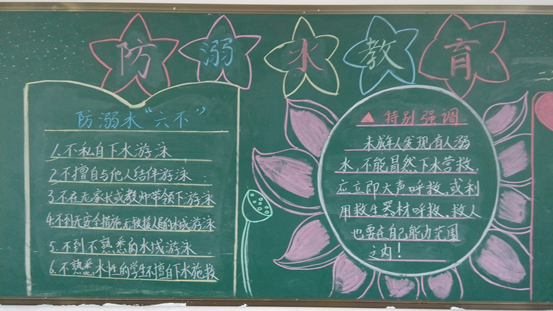 防溺水教育
防溺水“六不”
1.不私自下水游泳
2.不擅自与他人结伴游泳
3.不在无家长或教师带领下游泳
4.不到无安全措施、无救援人员的水域游泳
5.不到不熟悉的水域游泳
6.不熟悉水性的学生不擅自下水施救
▲特别强调
未成年人发现有人溺
水,不能冒然下水营救,
应立即大声呼救,或利
用救生器材呼救,救人
也要在自己能力范围
之内!